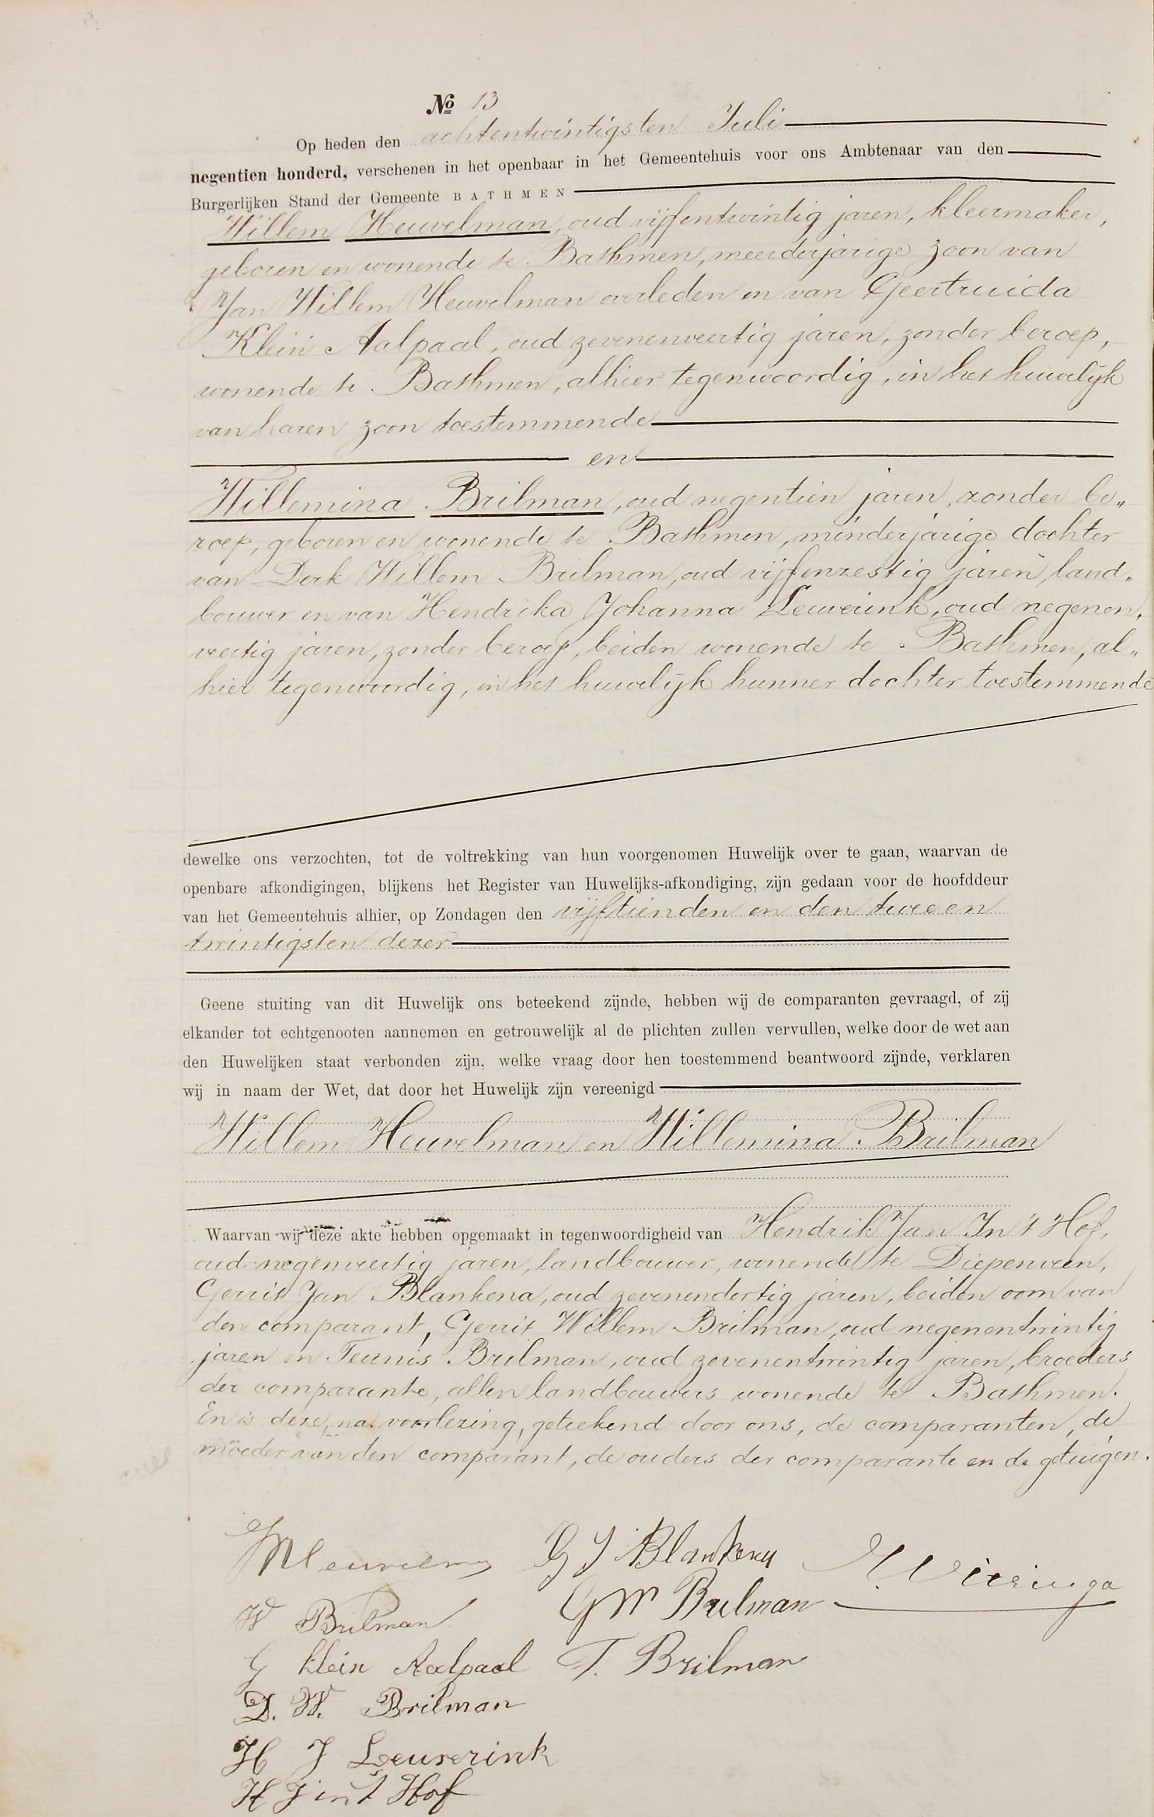 № 13
Op heden den achtentwintigsten Juli
negentien honderd, verschenen in het openbaar in het Gemeentehuis voor ons Ambtenaar van den
Burgerlijken Stand der Gemeente BATHMEN
Willem Heuvelman, oud vijfentwintig jaren, kleermaker,
geboren en wonende te Bathmen, meerderjarige zoon van
Jan Willem Heuvelman overleden en van Geertruida
Klein Aalpaal, oud zevenenveertig jaren, zonder beroep,
wonende te Bathmen, alhier tegenwoordig, in het huwelijk
van haren zoon toestemmende
en
Willemina Brilman, oud negentien jaren, zonder be„
roep, geboren en wonende te Bathmen, minderjarige dochter
van Derk Willem Brilman, oud vijfenzestig jaren, land„
bouwer en van Hendrika Johanna Leuverink, oud negenen„
veertig jaren, zonder beroep, beiden wonende te Bathmen, al„
hier tegenwoordig, in het huwelijk hunner dochter toestemmende
dewelke ons verzochten, tot de voltrekking van hun voorgenomen Huwelijk over te gaan, waarvan de
openbare afkondigingen, blijkens het Register van Huwelijks-afkondiging, zijn gedaan voor de hoofddeur
van het Gemeentehuis alhier, op Zondagen den vijftienden en den tweeen
twintigsten dezer
Geene stuiting van dit Huwelijk ons beteekend zijnde, hebben wij de comparanten gevraagd, of zij
elkander tot echtgenooten aannemen en getrouwelijk al de plichten zullen vervullen, welke door de wet aan
den Huwelijken staat verbonden zijn, welke vraag door hen toestemmend beantwoord zijnde, verklaren
wij in naam der Wet, dat door het Huwelijk zijn vereenigd
Willem Heuvelman en Willemina Brilman
Waarvan wij deze akte hebben opgemaakt in tegenwoordigheid van Hendrik Jan In 't Hof,
oud negenveertig jaren, landbouwer, wonende te Diepenveen,
Gerrit Jan Blankena, oud zevenendertig jaren, beiden oom van
den comparant, Gerrit Willem Brilman, oud negenentwintig
jaren en Teunis Brilman, oud zevenentwintig jaren, broeders
der comparante, allen landbouwers wonende te Bathmen.
En is deze, na voorlezing, geteekend door ons, de comparanten, de
moeder van den comparant, de ouders der comparante en de getuigen.
G J Blankena
Wieringa
W Brilman
GW Brilman
G klein Aalpaal
T. Brilman
D. W. Brilman
H J Leuverink
H J in 't Hof